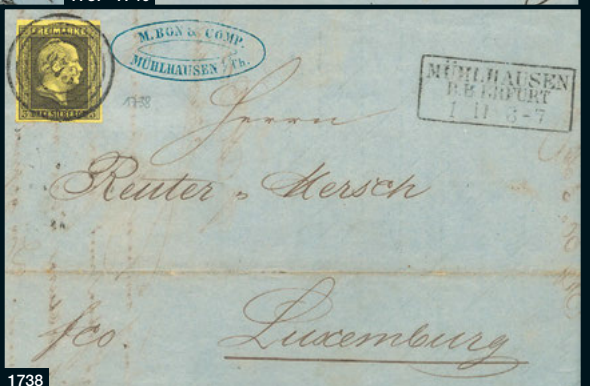 FREIMARKE
M. BON & COMP.
MÜHLHAUSEN i/Th.
MÜHLHAUSEN
R.B ERFURT
1 11 6-7
1738
Herrn
Reuter, Mersch
fco.
Luxemburg
1738